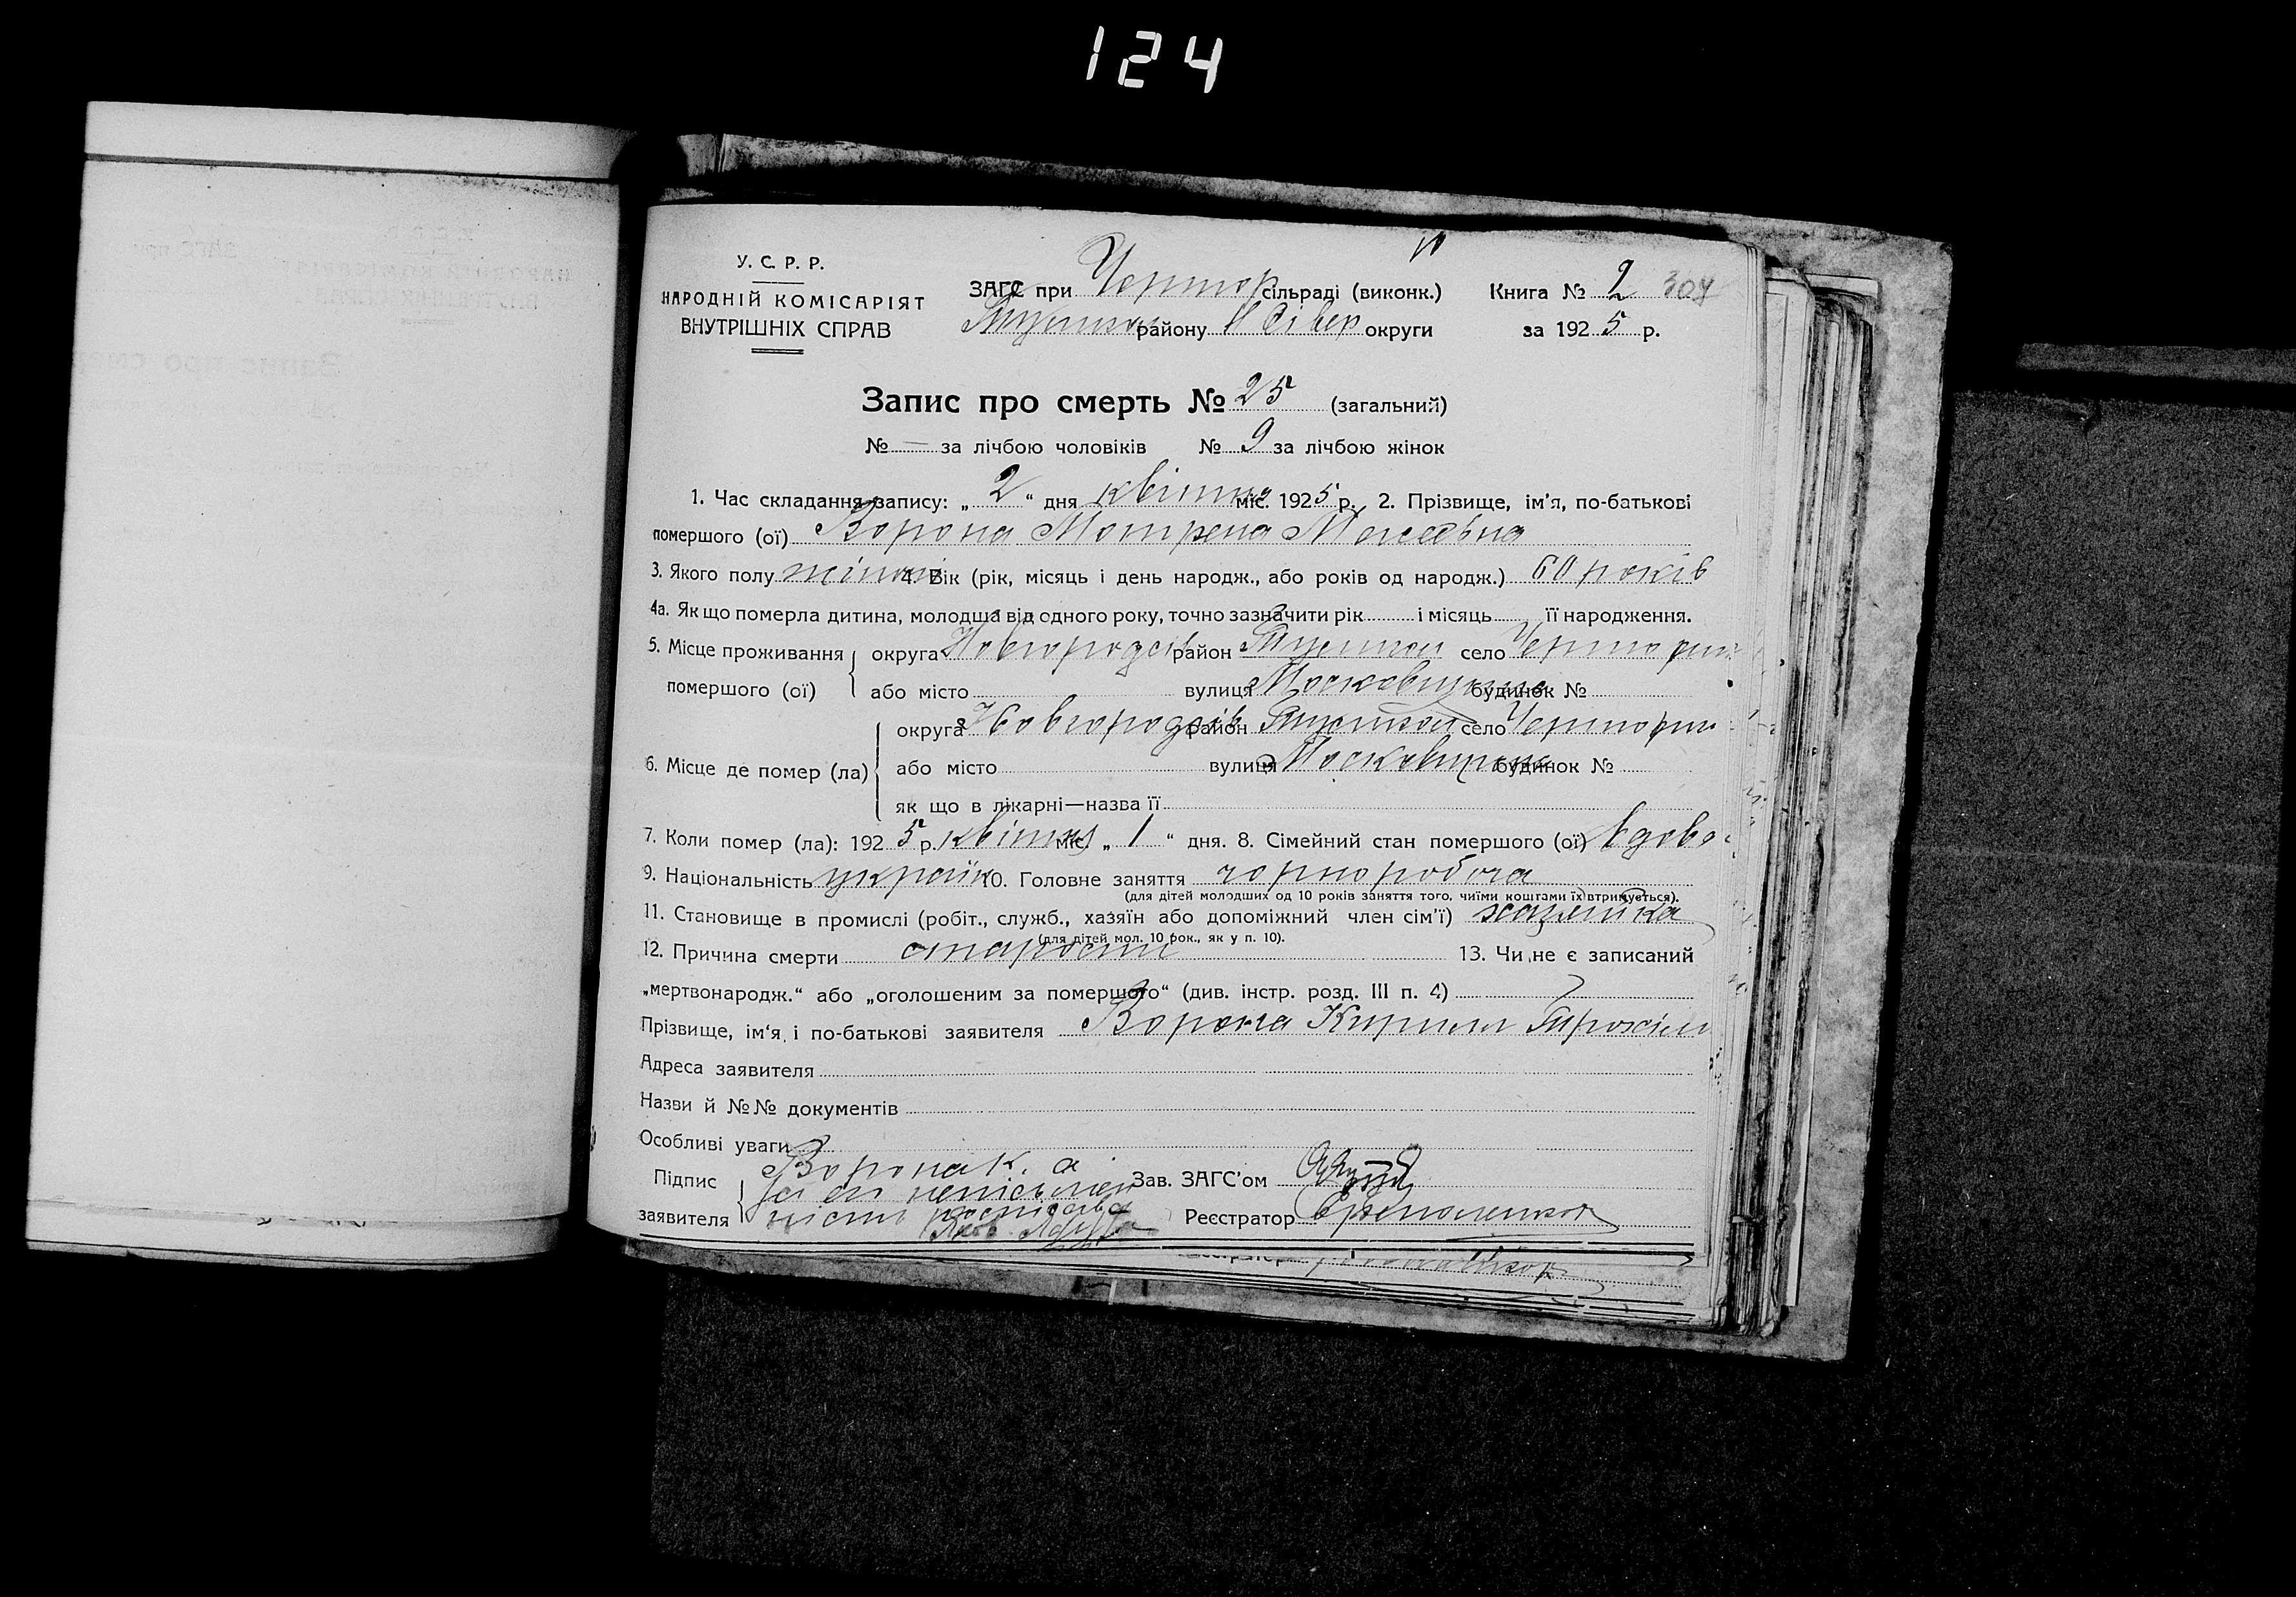 124
У. С. Р. Р.
НАРОДНІЙ КОМІСАРІЯТ
ВНУТРІШНІХ СПРАВ
ЗАГС при Чертор сільраді (виконк.) Книга № 2 307
району Н Сівер округи за 1925 р.
Запис про смерть № 25 (загальний)
№ — за лічбою чоловіків № 9 за лічбою жінок
1. Час складання запису: „ 2 “ дня квітня міс. 1925 р. 2. Прізвище, ім'я, по-батькові
помершого (ої) Ворона Мотрена
3. Якого полу жіноч 4. Вік (рік, місяць і день народж., або років од народж.) 60 років
4а. Як що померла дитина, молодша від одного року, точно зазначити рік і місяць її народження.
5. Місце проживання округа Новгородсів район село Черториги
помершого (ої) або місто вулиця Московщина будинок №
округа Новгородсів район село Черториги
6. Місце де помер (ла) або місто вулиця Московщина будинок №
як що в лікарні—назва її
7. Коли помер (ла): 1925 р. квітня міс. „ 1 “ дня. 8. Сімейний стан помершого (ої) вдова
9. Національність україн 10. Головне заняття чорноробоча
(для дітей молодших од 10 років заняття того, чиїми коштами їх втримується).
11. Становище в промислі (робіт., служб., хазяїн або допоміжний член сім'ї) хазяйка
(для дітей мол. 10 рок., як у п. 10).
12. Причина смерти старость 13. Чи не є записаний
„мертвонародж.“ або „оголошеним за помершого“ (див. інстр. розд. III п. 4)
Прізвище, ім'я і по-батькові заявителя Ворона Кирило
Адреса заявителя
Назви й №№ документів
Особливі уваги
Підпис Ворона К. а Зав. ЗАГС'ом
заявителя Реєстратор